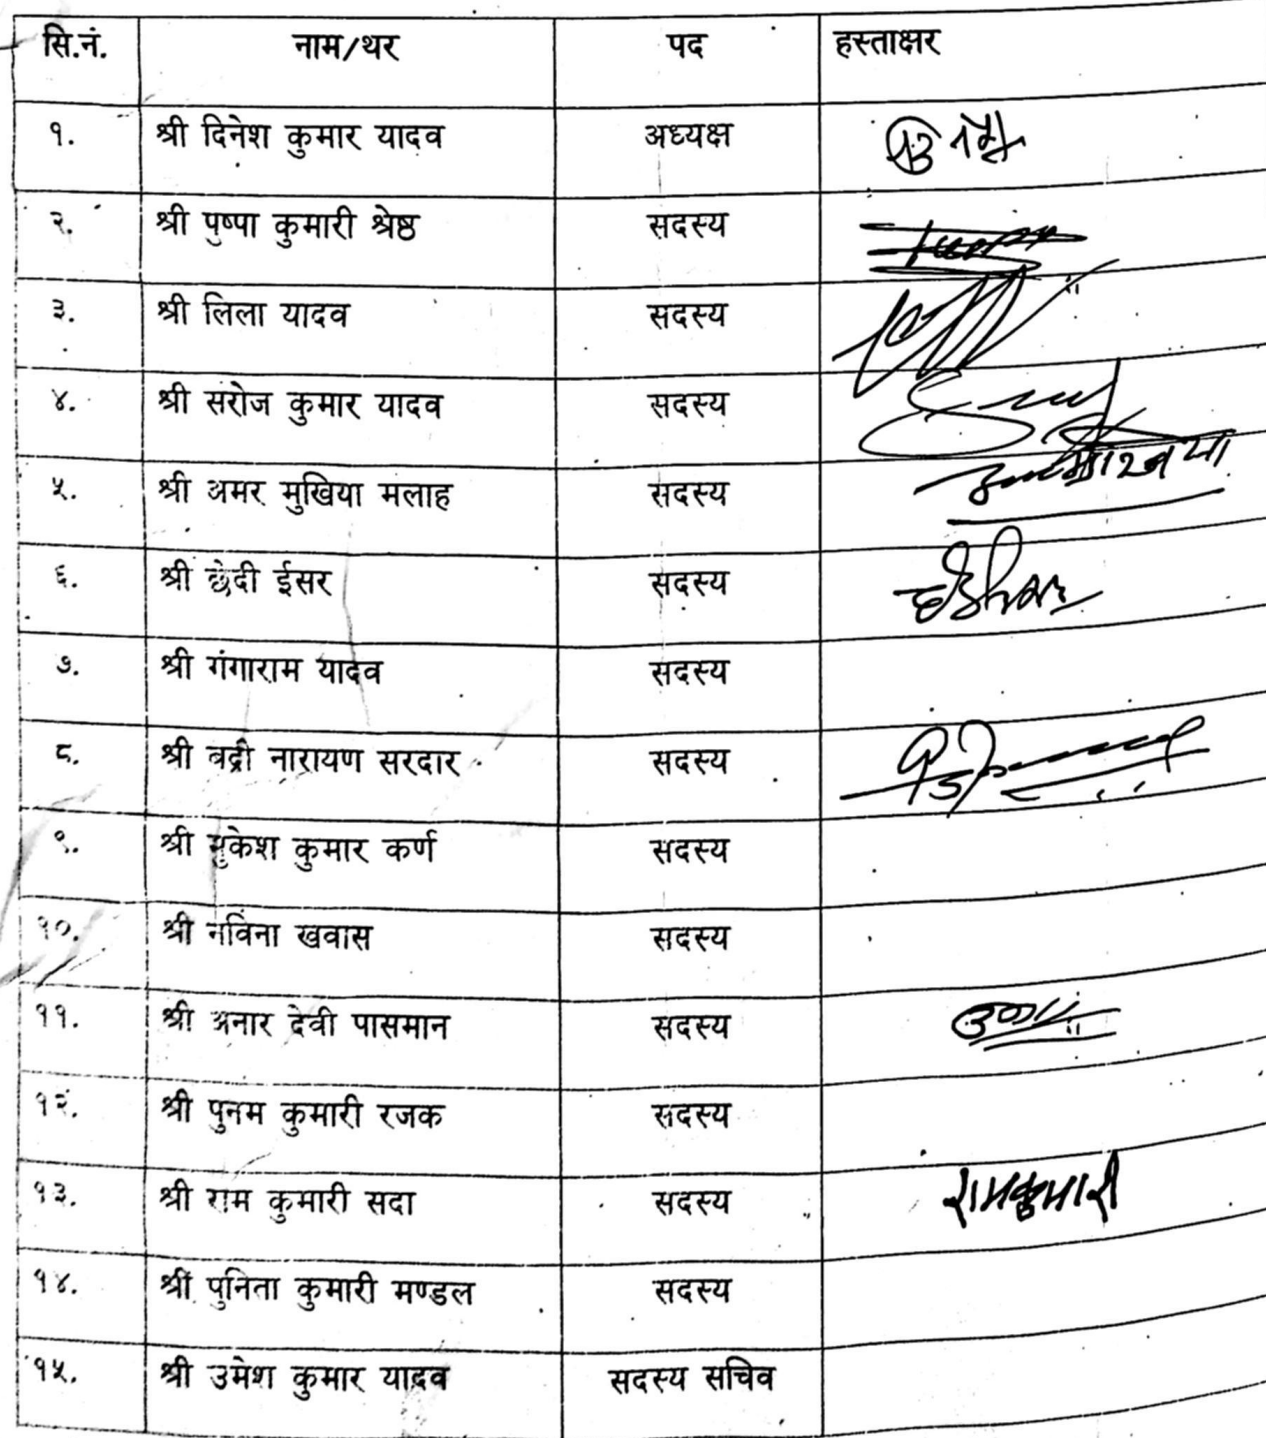 सि.नं. नाम/थर पद हस्ताक्षर
१. श्री दिनेश कुमार यादव अध्यक्ष
२. श्री पुष्पा कुमारी श्रेष्ठ सदस्य
३. श्री लिला यादव सदस्य
४. श्री सरोज कुमार यादव सदस्य
५. श्री अमर मुखिया मलाह सदस्य
६. श्री छेदी ईसर सदस्य
७. श्री गंगाराम यादव सदस्य
८. श्री बद्री नारायण सरदार सदस्य
९. श्री मुकेश कुमार कर्ण सदस्य
१०. श्री नविना खवास सदस्य
११. श्री अनार देवी पासमान सदस्य
१२. श्री पुनम कुमारी रजक सदस्य
१३. श्री राम कुमारी सदा सदस्य रामकुमारी
१४. श्री पुनिता कुमारी मण्डल सदस्य
१५. श्री उमेश कुमार यादव सदस्य सचिव